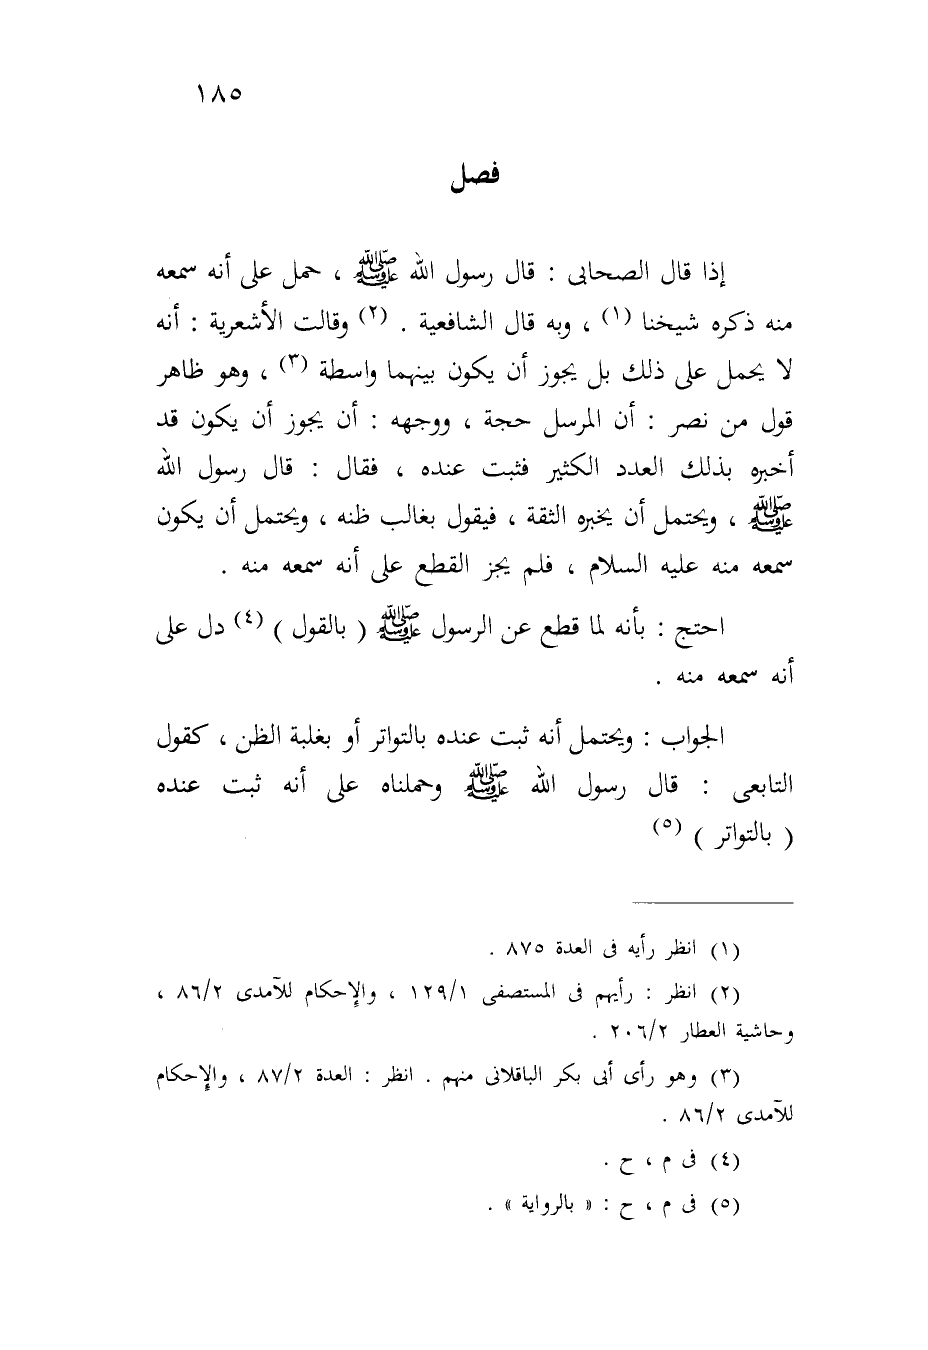 ١٨٥
فصل
إذا قال الصحابى : قال رسول الله ﷺ ، حمل على أنه سمعه
منه ذكره شيخنا (١) ، وبه قال الشافعية . (٢) وقالت الأشعرية : أنه
لا يحمل على ذلك بل يجوز أن يكون بينهما واسطة (٣) ، وهو ظاهر
قول من نصر : أن المرسل حجة ، ووجهه : أن يجوز أن يكون قد
أخبره بذلك العدد الكثير فثبت عنده ، فقال : قال رسول الله
ﷺ ، ويحتمل أن يخبره الثقة ، فيقول بغالب ظنه ، ويحتمل أن يكون
سمعه منه عليه السلام ، فلم يجز القطع على أنه سمعه منه .
احتج : بأنه لما قطع عن الرسول ﷺ ( بالقول ) (٤) دل على
أنه سمعه منه .
الجواب : ويحتمل أنه ثبت عنده بالتواتر أو بغلبة الظن ، كقول
التابعى : قال رسول الله ﷺ وحملناه على أنه ثبت عنده
( بالتواتر ) (٥)
(١) انظر رأيه فى العدة ٨٧٥ .
(٢) انظر : رأيهم فى المستصفى ١٢٩/١ ، والإحكام للآمدى ٨٦/٢ ،
وحاشية العطار ٢٠٦/٢ .
(٣) وهو رأى أبى بكر الباقلانى منهم . انظر : العدة ٨٧/٢ ، والإحكام
للآمدى ٨٦/٢ .
(٤) فى م ، ح .
(٥) فى م ، ح : « بالرواية » .